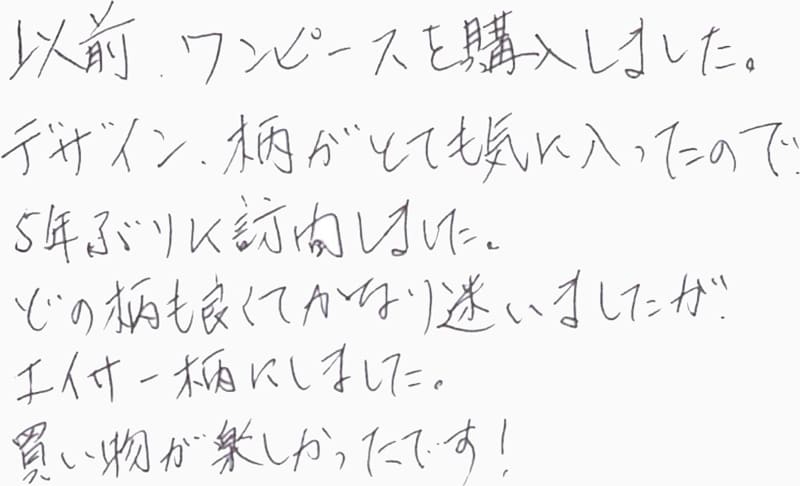 以前、ワンピースを購入しました。
デザイン、柄がとても気に入ったので
5年ぶりに訪問しました。
どの柄も良くてかなり迷いましたが
エイサー柄にしました。
買い物が楽しかったです!